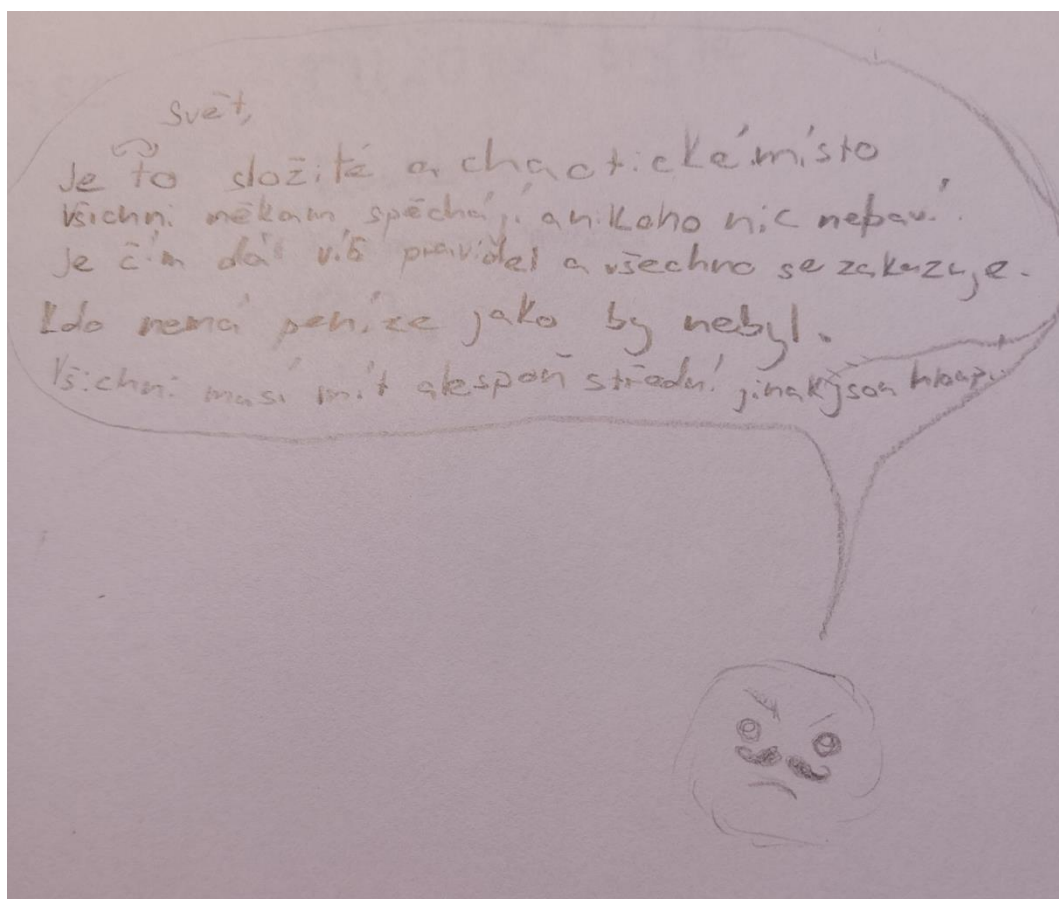 Svět,
Je to složité a chaotické místo
Všichni někam spěchají a nikoho nic nebaví.
Je čím dál víc pravidel a všechno se zakazuje.
Kdo nemá peníze jako by nebyl.
Všichni musí mít alespoň střední jinak jsou hloupí.